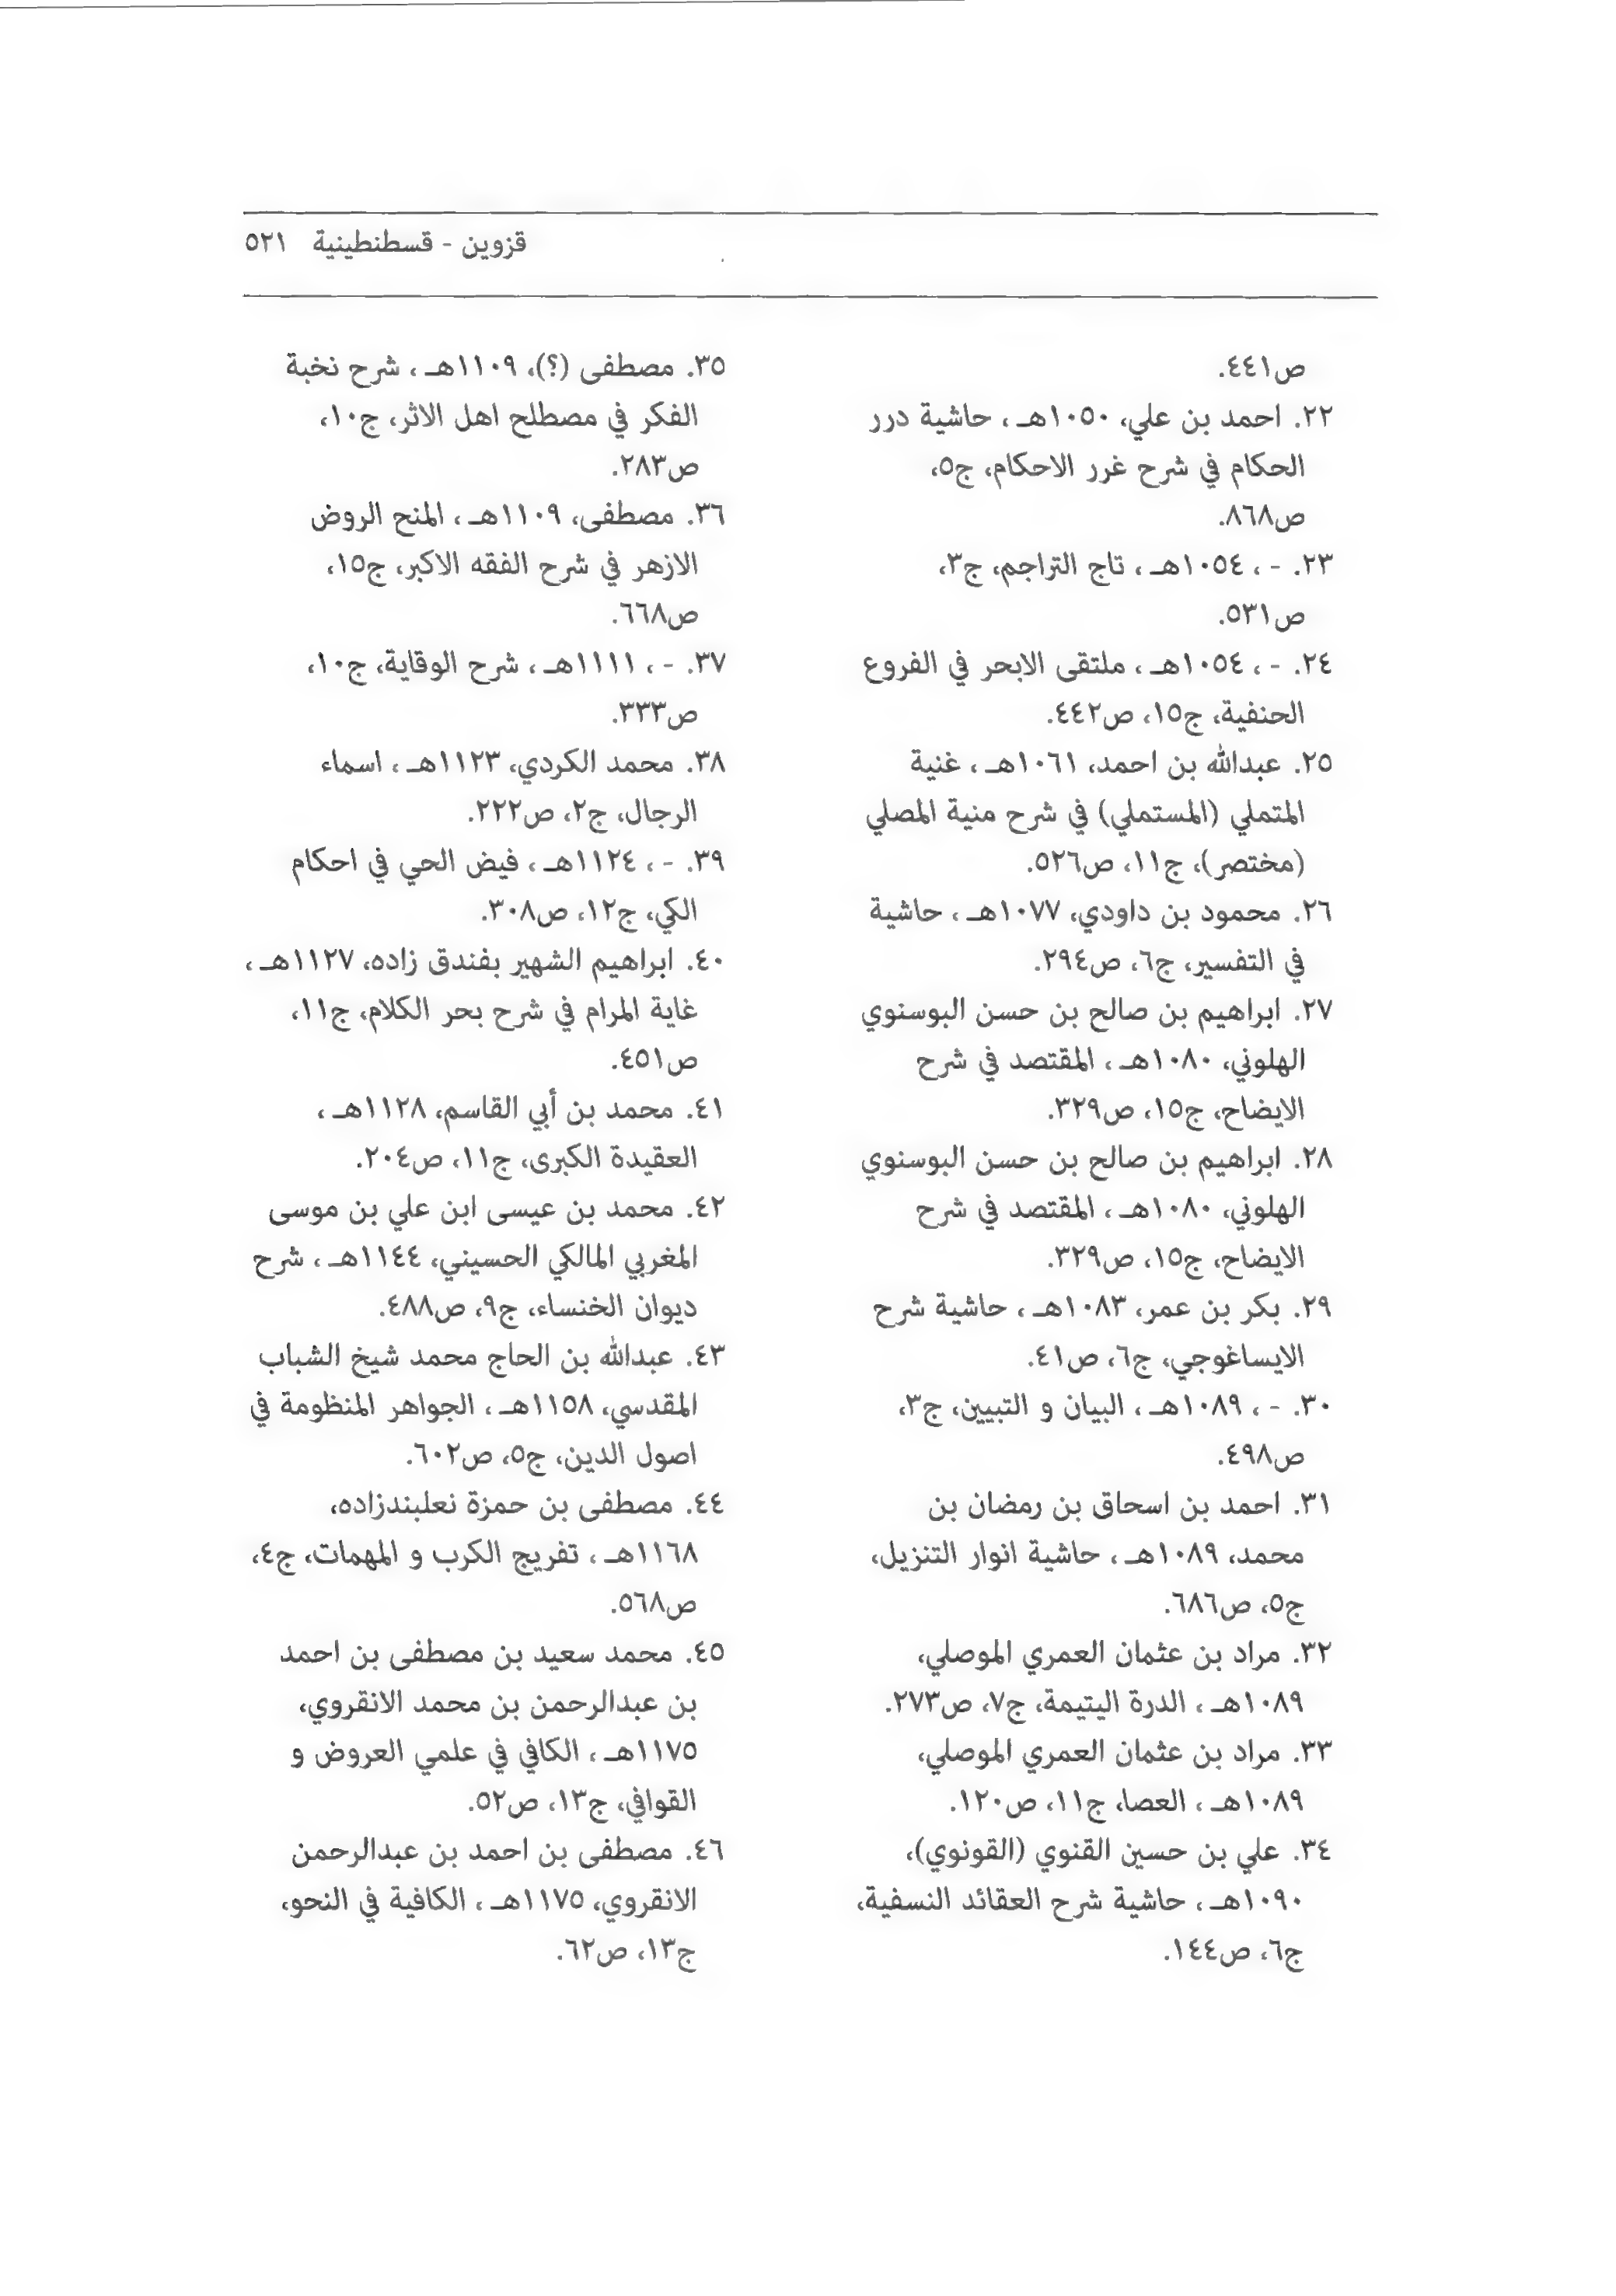 قزوين - قسطنطينية ٥٢١
ص٤٤١.
٢٢. احمد بن علي، ١٠٥٠هـ ، حاشية درر
الحكام في شرح غرر الاحكام، ج٥،
ص٨٦٨.
٢٣. - ، ١٠٥٤هـ ، تاج التراجم، ج٣،
ص٥٣١.
٢٤. - ، ١٠٥٤هـ ، ملتقى الابحر في الفروع
الحنفية، ج١٥، ص٤٤٢.
٢٥. عبدالله بن احمد، ١٠٦١هـ ، غنية
المتملي (المستملي) في شرح منية المصلي
(مختصر)، ج١١، ص٥٢٦.
٢٦. محمود بن داودي، ١٠٧٧هـ ، حاشية
في التفسير، ج٦، ص٢٩٤.
٢٧. ابراهيم بن صالح بن حسن البوسنوي
الهلوني، ١٠٨٠هـ ، المقتصد في شرح
الايضاح، ج١٥، ص٣٢٩.
٢٨. ابراهيم بن صالح بن حسن البوسنوي
الهلوني، ١٠٨٠هـ ، المقتصد في شرح
الايضاح، ج١٥، ص٣٢٩.
٢٩. بكر بن عمر، ١٠٨٣هـ ، حاشية شرح
الايساغوجي، ج٦، ص٤١.
٣٠. - ، ١٠٨٩هـ ، البيان و التبيين، ج٣،
ص٤٩٨.
٣١. احمد بن اسحاق بن رمضان بن
محمد، ١٠٨٩هـ ، حاشية انوار التنزيل،
ج٥، ص٦٨٦.
٣٢. مراد بن عثمان العمري الموصلي،
١٠٨٩هـ ، الدرة اليتيمة، ج٧، ص٢٧٣.
٣٣. مراد بن عثمان العمري الموصلي،
١٠٨٩هـ ، العصا، ج١١، ص١٢٠.
٣٤. علي بن حسين القنوي (القونوي)،
١٠٩٠هـ ، حاشية شرح العقائد النسفية،
ج٦، ص١٤٤.
٣٥. مصطفى (؟)، ١١٠٩هـ ، شرح نخبة
الفكر في مصطلح اهل الاثر، ج١٠،
ص٢٨٣.
٣٦. مصطفى، ١١٠٩هـ ، المنح الروض
الازهر في شرح الفقه الاكبر، ج١٥،
ص٦٦٨.
٣٧. - ، ١١١١هـ ، شرح الوقاية، ج١٠،
ص٣٣٣.
٣٨. محمد الكردي، ١١٢٣هـ ، اسماء
الرجال، ج٢، ص٢٢٢.
٣٩. - ، ١١٢٤هـ ، فيض الحي في احكام
الكي، ج١٢، ص٣٠٨.
٤٠. ابراهيم الشهير بفندق زاده، ١١٢٧هـ ،
غاية المرام في شرح بحر الكلام، ج١١،
ص٤٥١.
٤١. محمد بن أبي القاسم، ١١٢٨هـ ،
العقيدة الكبرى، ج١١، ص٢٠٤.
٤٢. محمد بن عيسى ابن علي بن موسى
المغربي المالكي الحسيني، ١١٤٤هـ ، شرح
ديوان الخنساء، ج٩، ص٤٨٨.
٤٣. عبدالله بن الحاج محمد شيخ الشباب
المقدسي، ١١٥٨هـ ، الجواهر المنظومة في
اصول الدين، ج٥، ص٦٠٢.
٤٤. مصطفى بن حمزة نعلبندزاده،
١١٦٨هـ ، تفريج الكرب و المهمات، ج٤،
ص٥٦٨.
٤٥. محمد سعيد بن مصطفى بن احمد
بن عبدالرحمن بن محمد الانقروي،
١١٧٥هـ ، الكافي في علمي العروض و
القوافي، ج١٣، ص٥٢.
٤٦. مصطفى بن احمد بن عبدالرحمن
الانقروي، ١١٧٥هـ ، الكافية في النحو،
ج١٣، ص٦٢.